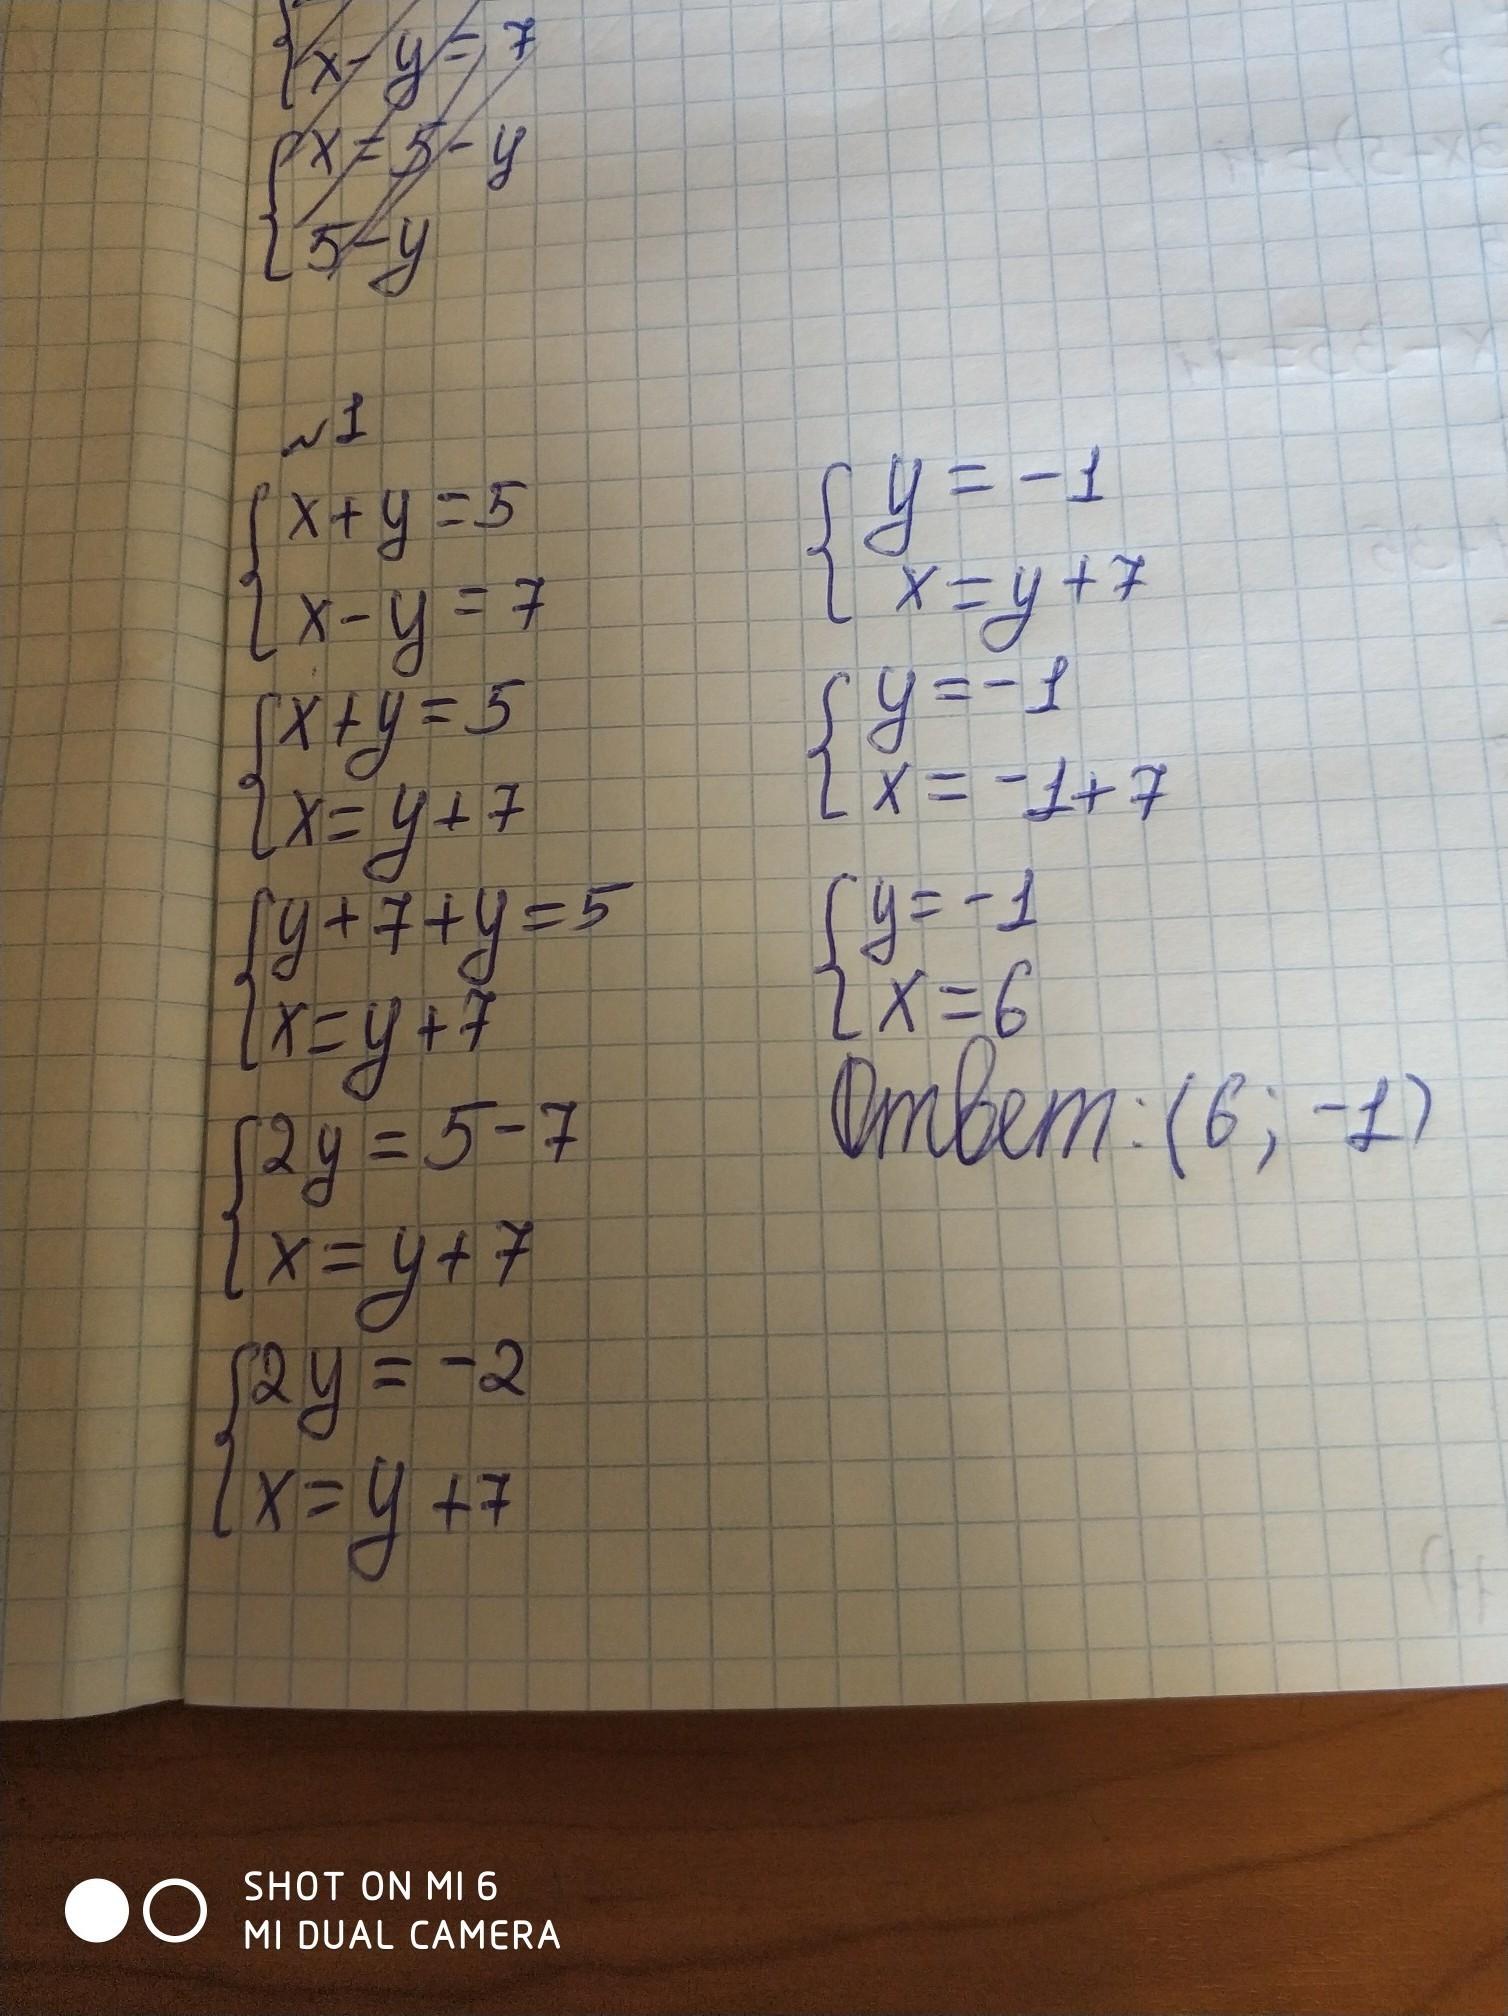 x - y = 7
x = 5 - y
5 - y
~1
x + y = 5
x - y = 7
x + y = 5
x = y + 7
y + 7 + y = 5
x = y + 7
2y = 5 - 7
x = y + 7
2y = -2
x = y + 7
y = -1
x = y + 7
y = -1
x = -1 + 7
y = -1
x = 6
Ответ: (6; -1)
SHOT ON MI 6
MI DUAL CAMERA